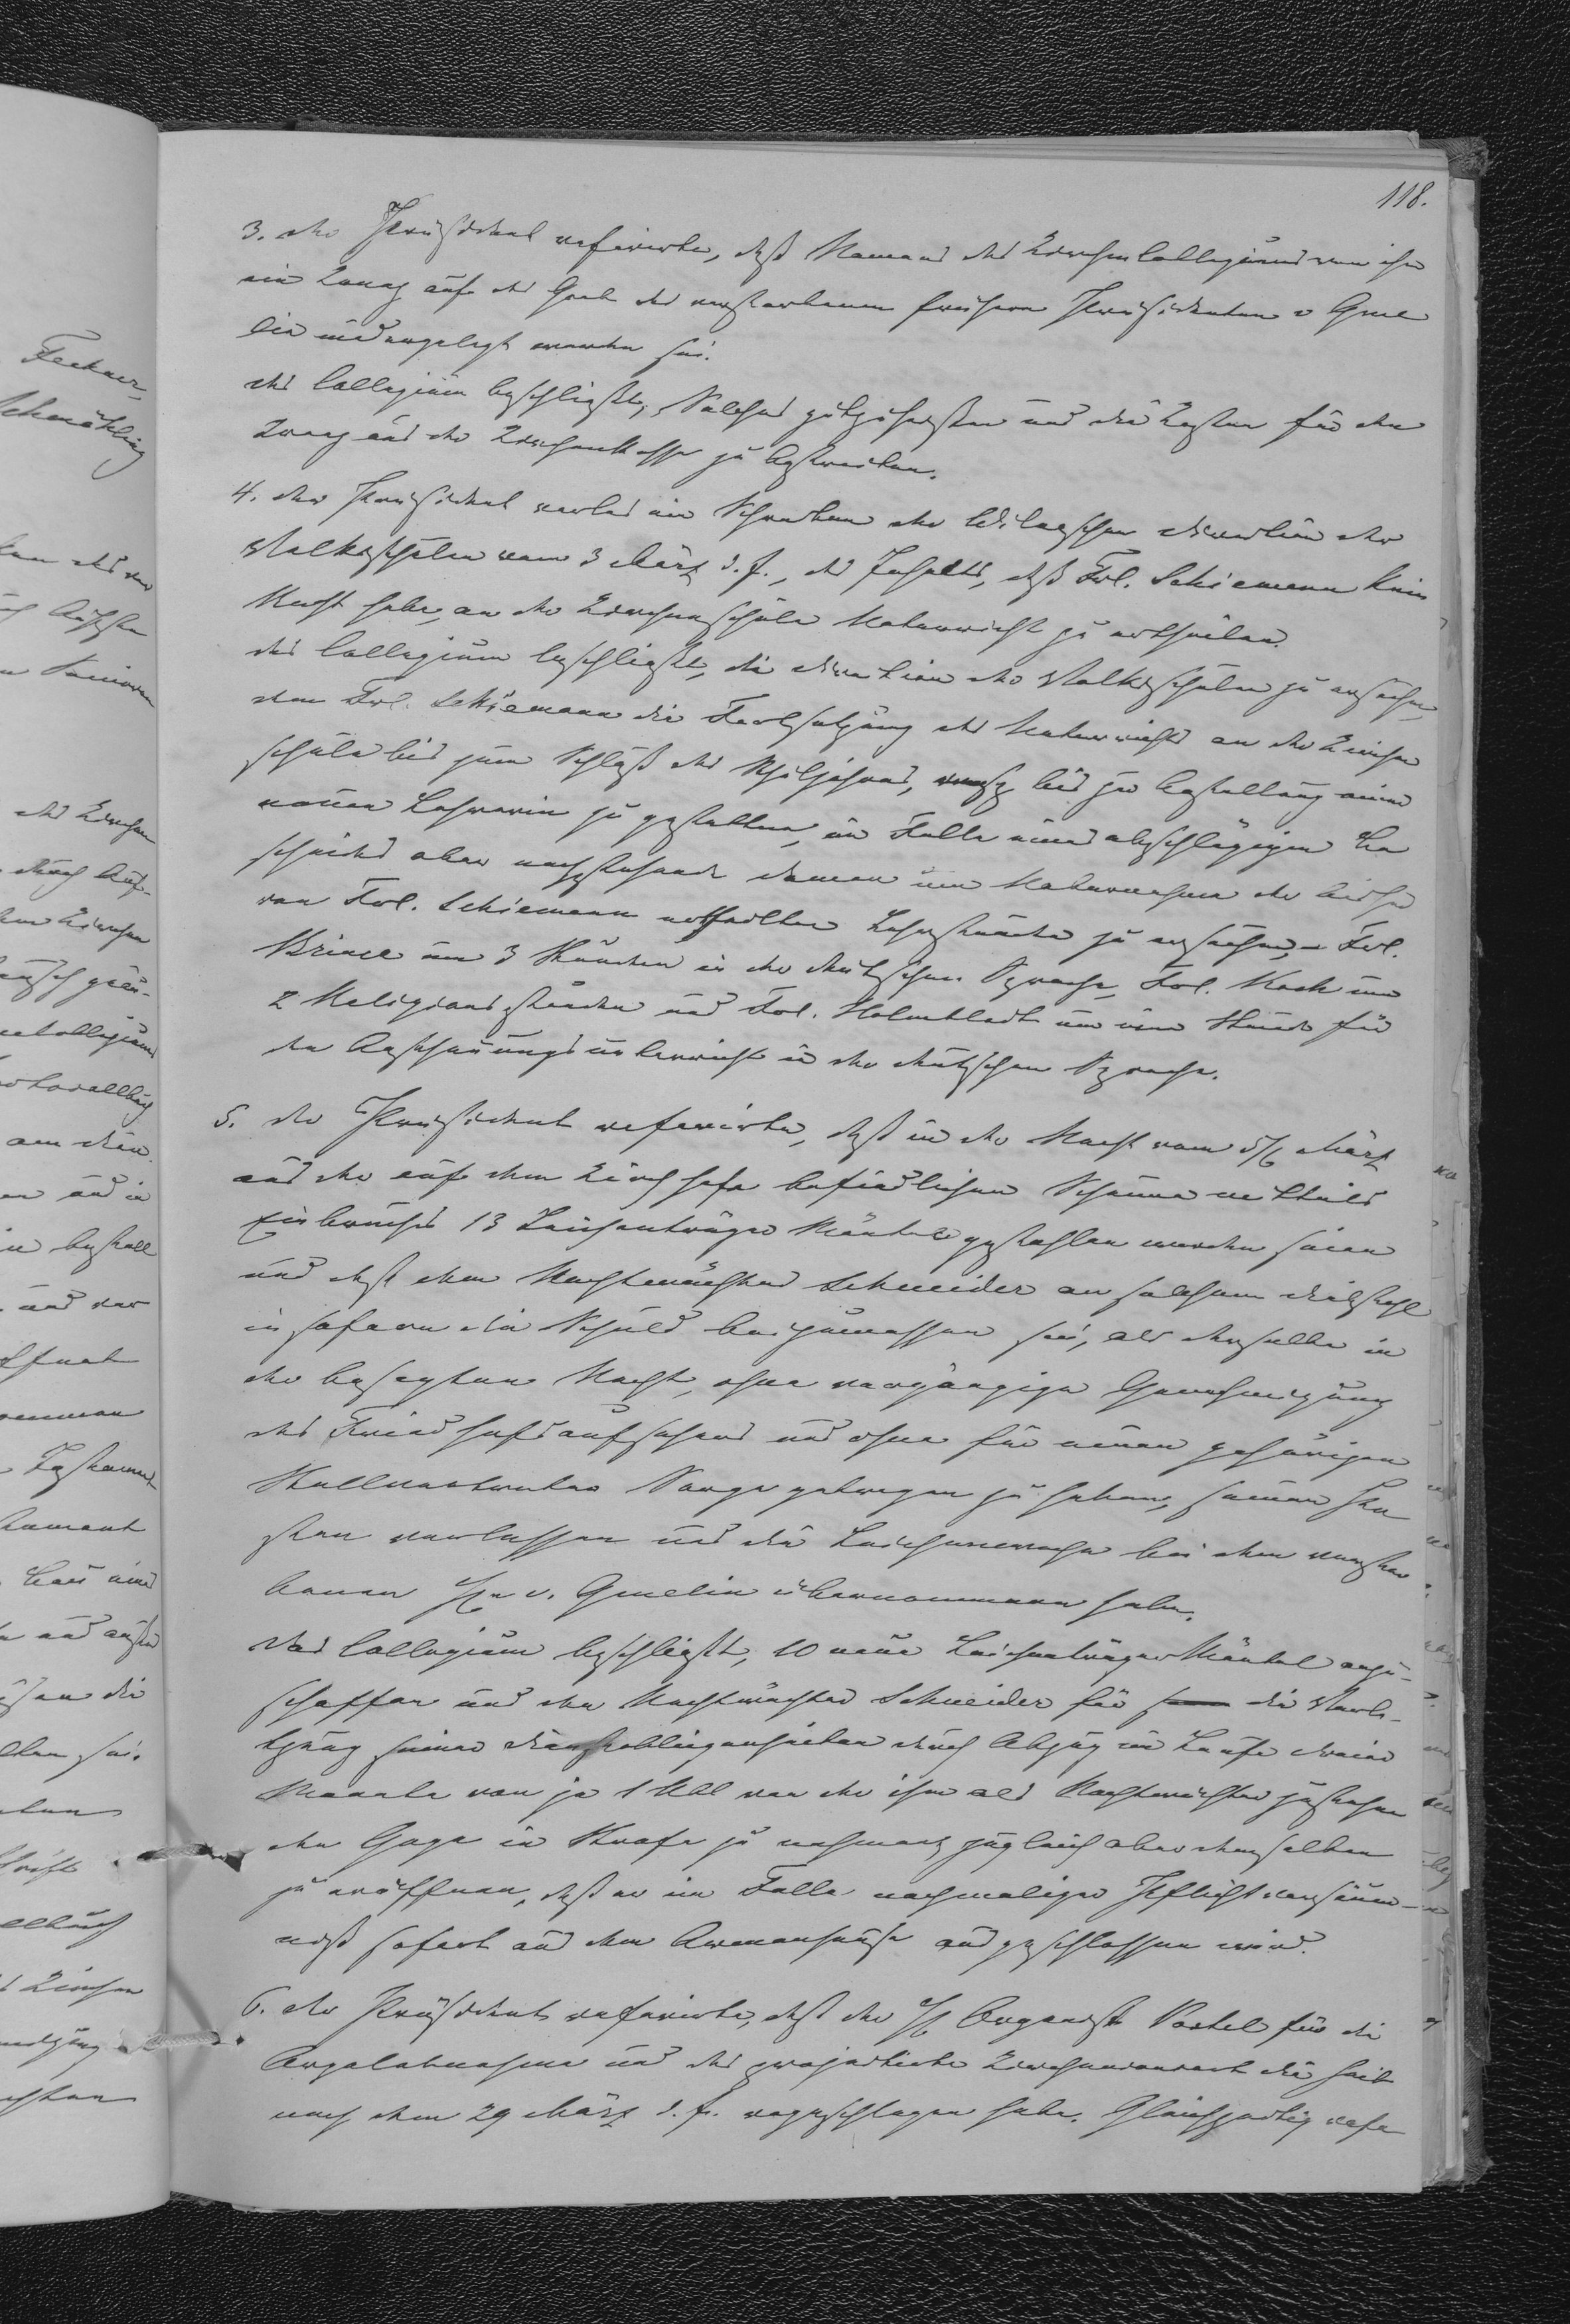 118.
3. der Präsident referirte, daß Namens des Kirchencollegiums von ihm
ein Kranz auf das Grab des verstorbenen früheren Präsidenten v Gme
lin niedergelegt worden sei.
das Collegium beschließt, Solches gutzuheißen und die Kosten für den
Kranz aus der Kirchenkasse zu bestreiten.
4. der Präsident verlas ein Schreiben der Wilnaschen direction der
Volksschulen vom 3 März d. J., des Inhalts, daß Frl. Schiemann kein
Recht habe, an der Kirchenschule Unterricht zu ertheilen.
das Collegium beschließt, die direction der Volksschulen zu ersuchen,
dem Frl. Schiemann die Fortsetzung des Unterrichts an der Kirchen
schule bis zum Schluß des Schuljahres, resp bis zur Anstellung einer
neuen Lehrerin zu gestatten, im Falle eines abschlägigen Be
scheides aber nachstehende damen um Uebernahme der bisher
von Frl. Schiemann ertheilten Lehrstunden zu ersuchen, – Frl.
Brince um 3 Stunden in der deutschen Sprache, Frl. Koch um
2 Religionsstunden und Frl. Holmbladt um eine Stunde für
den Anschauungsunterricht in der deutschen Sprache.
5. der Präsident referirte, daß in der Nacht vom 5/6 März
aus der auf dem Kirchhofe befindlichen Scheune mittelst
Einbruches 13 Leichenträger Mäntel gestohlen worden seien
und daß dem Nachtwächter Schneider an solchem diebstahl
in sofern die Schuld beizumessen sei, als derselbe in
der besagten Nacht, ohne vorgängige Genehmigung
des Friedhofsaufsehers und ohne für einen gehörigen
Stellvertreter Sorge getragen zu haben, seinen Po
sten verlassen und die Leichenwache bei dem verstor
benen Hrn v. Gmelin übernommen habe.
Das Collegium beschließt, 10 neue Leichenträger Mäntel anzu-
schaffen und den Nachtwächter Schneider für die Verle-
tzung seiner dienstobliegenheiten durch Abzug im Laufe dreier
Monate von je 1 Rbl von der ihm als Nachtwächter zustehen
den Gage in Strafe zu nehmen, zugleich aber demselben
zu eröffnen, daß er im Falle nochmaliger Pflichtversäum-
niß sofort aus dem Armenhause ausgeschlossen wird.
6. der Präsident referirte, daß der H. Organist Postel für die
Orgelabnahme und das projectirte Kirchenconcert die Zeit
nach dem 29 März d. J. vorgeschlagen habe. Gleichzeitig refe